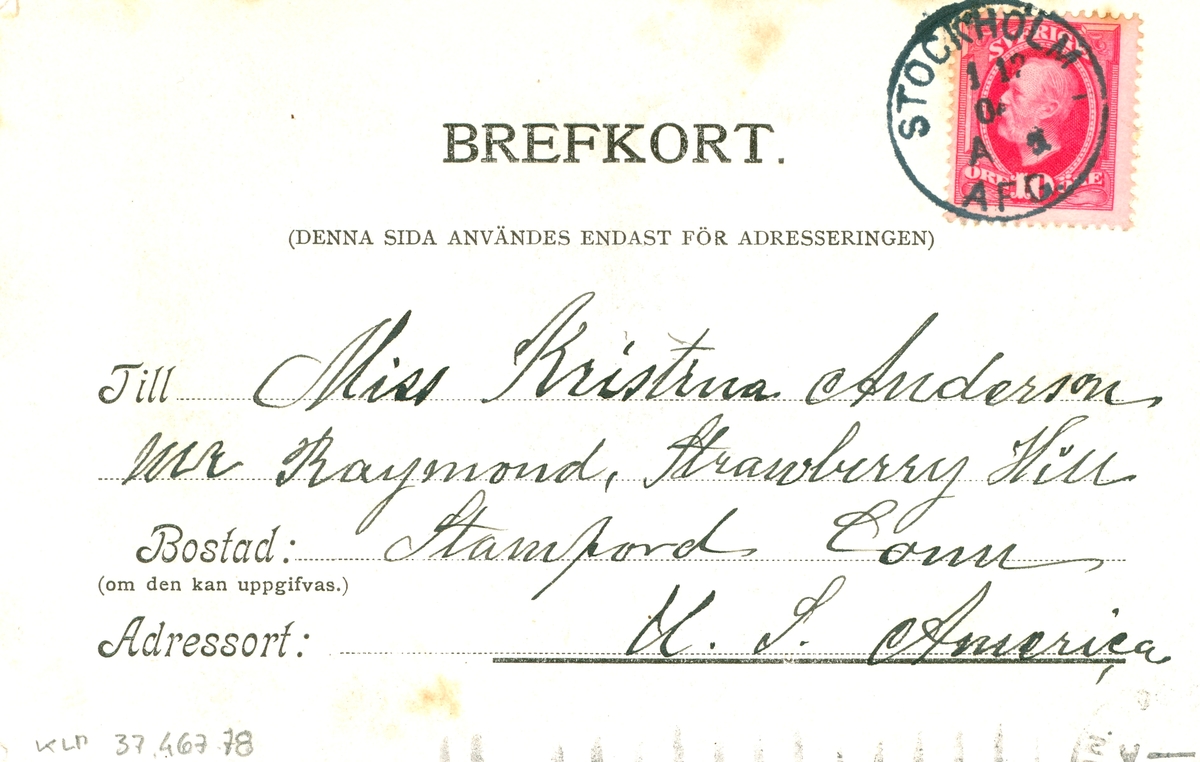 STOCKHOLM
1 12
A
AFG.
SVERIGE
ÖRE 10
BREFKORT.
(DENNA SIDA ANVÄNDES ENDAST FÖR ADRESSERINGEN)
Till Miss Kristina Anderson
Mr Raymond, Strawberry Hill
Bostad: Stamford Conn
(om den kan uppgifvas.)
Adressort: U. S. America
KLM 37.467.78